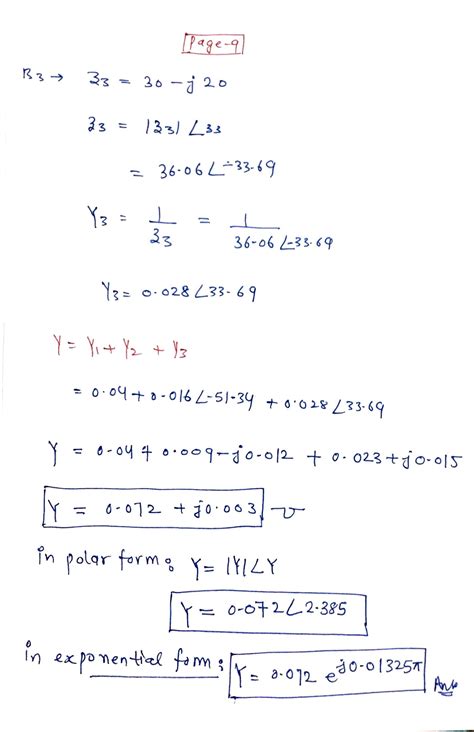 Page-9
B3 → Z3 = 30 - j 20
Z3 = |Z3| ∠Z3
= 36.06 ∠-33.69
Y3 = 1/Z3 = 1/36.06 ∠-33.69
Y3 = 0.028 ∠33.69
Y = Y1 + Y2 + Y3
= 0.04 + 0.016 ∠-51.34 + 0.028 ∠33.69
Y = 0.04 + 0.009 - j0.012 + 0.023 + j0.015
Y = 0.072 + j0.003 ℧
in polar form : Y = |Y| ∠Y
Y = 0.072 ∠2.385
in exponential form : Y = 0.072 e^j0.01325π Ans